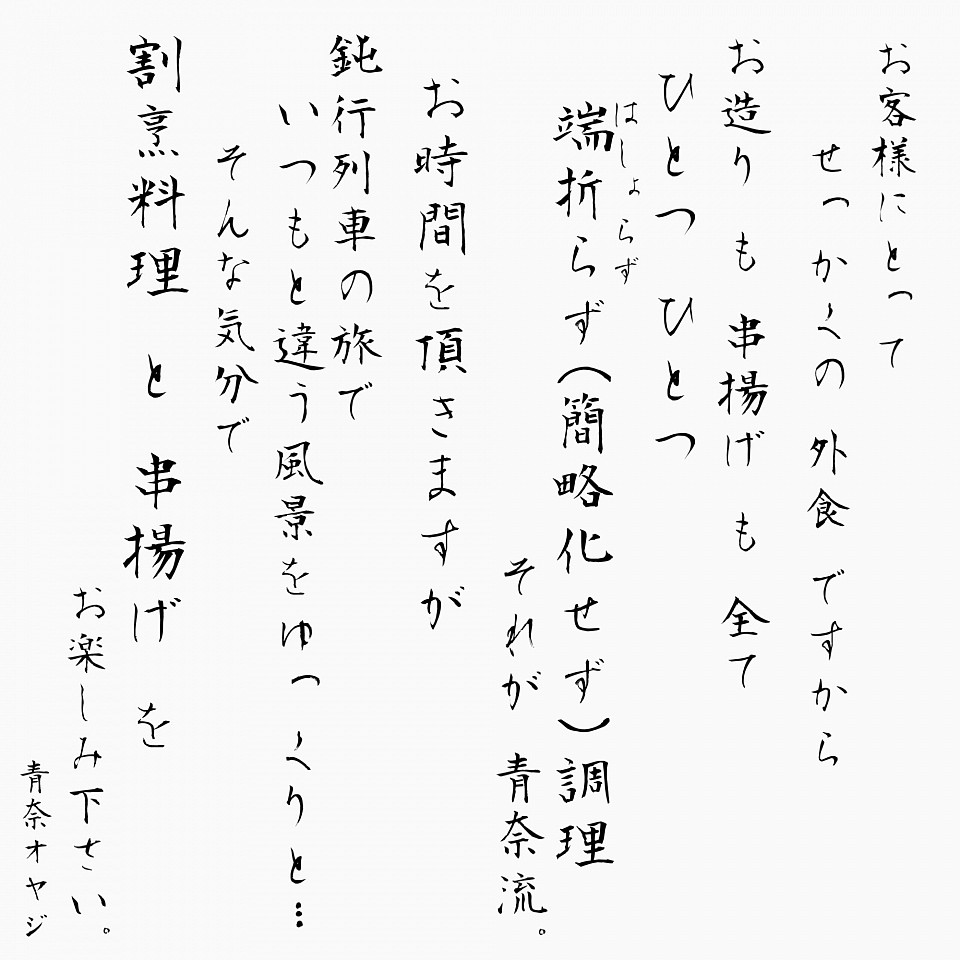 お客様にとって
せっかくの 外食 ですから
お造りも 串揚げも 全て
ひとつ ひとつ
はしょらず
端折らず（簡略化せず）調理
それが 青奈流。
お時間を頂きますが
鈍行列車の旅で
いつもと違う風景をゆっくりと…
そんな気分で
割烹料理 と 串揚げ を
お楽しみ下さい。
青奈オヤジ